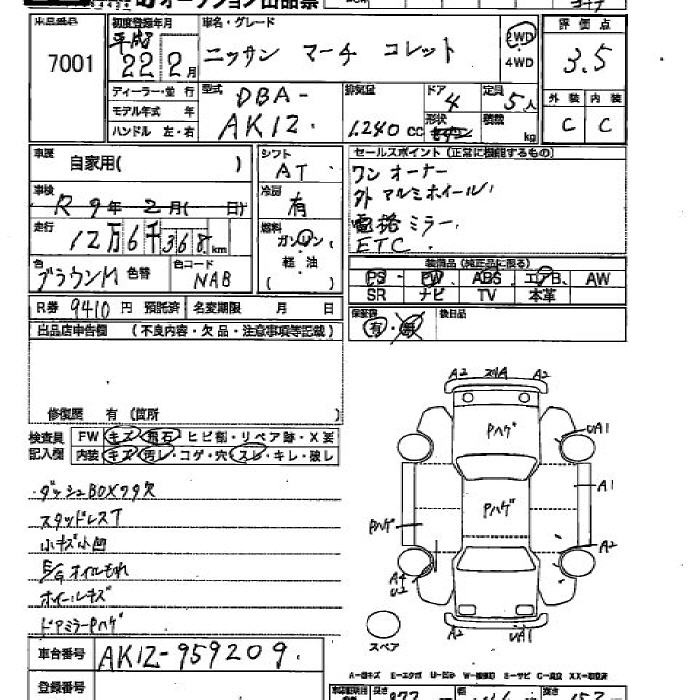 オークション出品票
出品番号
7001
初度登録年月
平成
22年2月
車名・グレード
ニッサン マーチ コレット
2WD
・
4WD
評価点
3.5
外装 内装
C C
ディーラー・並行
モデル年式 年
ハンドル 左・右
型式
DBA-
AK12
排気量
1,240 CC
ドア
4
形状
定員
5人
積載
kg
車歴
自家用( )
シフト
AT
セールスポイント(正常に機能するもの)
ワンオーナー
外アルミホイール
電格ミラー
ETC
車検
R9年2月( 日)
冷房
有
走行
12万6千368km
燃料
ガソリン
軽・油
( )
色
ブラウンM 色替
色コード
NAB
装備品(純正品に限る)
PS・ PW、 ABS、 エアB、 AW
SR ナビ TV 本革
R券 9410円 預託済 名変期限 月 日
保証書
有・無
後日品
出品店申告欄 (不良内容・欠品・注意事項等記載)
修復歴 有(箇所 )
検査員
記入欄
FW キズ・飛石・ヒビ割・リペア跡・X要
内装 キズ・汚レ・コゲ・穴・スレ・キレ・破レ
ダッシュBOXフタ欠
スタッドレスT
小キズ小凹
E/Gオイルもれ
ホイールキズ
ドアミラーPハゲ
車台番号
AK12-959209.
登録番号
A2 A2
Pハゲ
UA1
A1
Pハゲ
Pハゲ
A2
A4
U2
A2 UA1
スペア
A-線キズ E-エクボ U-凹み
長さ
幅
高さ